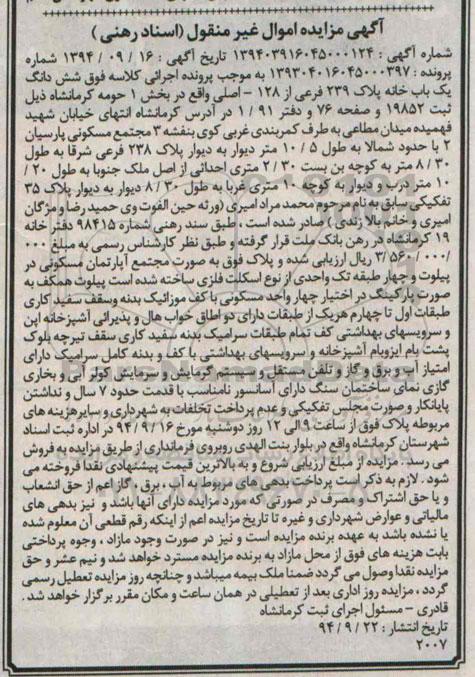 آگهی مزایده اموال غیر منقول (اسناد رهنی)
شماره آگهی : ۱۳۹۴۰۳۹۱۶۰۴۵۰۰۰۱۲۴ تاریخ آگهی : ۱۶ / ۰۹ / ۱۳۹۴ شماره
پرونده : ۱۳۹۳۰۴۰۱۶۰۴۵۰۰۰۳۹۷ به موجب پرونده اجرائی کلاسه فوق شش دانگ
یک باب خانه پلاک ۲۳۹ فرعی از ۱۲۸ - اصلی واقع در بخش ۱ حومه کرمانشاه ذیل
ثبت ۱۹۸۵۲ و صفحه ۷۶ و دفتر ۹۱ / ۱ در آدرس کرمانشاه انتهای خیابان شهید
فهمیده میدان مطاعی به طرف کمربندی غربی کوی بنفشه ۳ مجتمع مسکونی پارسیان
۲ با حدود شمالا به طول ۵ / ۱۰ متر دیوار به دیوار پلاک ۲۳۸ فرعی شرقا به طول
۳۰ / ۸ متر به کوچه بن بست ۳۰ / ۲ متری احداثی از اصل ملک جنوبا به طول ۲۰ /
۱۰ متر درب و دیوار به کوچه ۱۰ متری غربا به طول ۳۰ / ۸ دیوار به دیوار پلاک ۳۵
تفکیکی سابق به نام مرحوم محمد مراد امیری (ورثه حین الفوت وی حمید رضا و مژگان
امیری و خانم بالا زندی) صادر شده است ، طبق سند رهنی شماره ۹۸۴۱۵ دفتر خانه
۱۹ کرمانشاه در رهن بانک ملت قرار گرفته و طبق نظر کارشناس رسمی به مبلغ ۰۰۰
/۰۰۰/ ۳/۵۶۰ ریال ارزیابی شده و پلاک فوق به صورت مجتمع آپارتمان مسکونی در
پیلوت و چهار طبقه تک واحدی از نوع اسکلت فلزی ساخته شده است پیلوت همکف به
صورت پارکینگ در اختیار چهار واحد مسکونی با کف موزائیک بدنه وسقف سفید کاری
طبقات اول تا چهارم هریک از طبقات دارای دو اطاق خواب هال و پذیرائی آشپزخانه اپن
و سرویسهای بهداشتی کف تمام طبقات سرامیک بدنه سفید کاری سقف تیرچه بلوک
پشت بام ایزوبام آشپزخانه و سرویسهای بهداشتی با کف و بدنه کامل سرامیک دارای
امتیاز آب و برق و گاز و تلفن مستقل و سیستم گرمایش و سرمایش کولر آبی و بخاری
گازی نمای ساختمان سنگ دارای آسانسور نامناسب با قدمت حدود ۷ سال و نداشتن
پایانکار و صورت مجلس تفکیکی و عدم پرداخت تخلفات به شهرداری و سایر هزینه های
مربوطه پلاک فوق از ساعت ۹ الی ۱۲ روز دوشنبه مورخ ۹۴/۹/۱۶ در اداره ثبت اسناد
شهرستان کرمانشاه واقع در بلوار بنت الهدی روبروی فرمانداری از طریق مزایده به فروش
می رسد . مزایده از مبلغ ارزیابی شروع و به بالاترین قیمت پیشنهادی نقدا فروخته می
شود . لازم به ذکر است پرداخت بدهی های مربوط به آب ، برق ، گاز اعم از حق انشعاب
و یا حق اشتراک و مصرف در صورتی که مورد مزایده دارای آنها باشد و نیز بدهی های
مالیاتی و عوارض شهرداری و غیره تا تاریخ مزایده اعم از اینکه رقم قطعی آن معلوم شده
یا نشده باشد به عهده برنده مزایده است و نیز در صورت وجود مازاد ، وجوه پرداختی
بابت هزینه های فوق از محل مازاد به برنده مزایده مسترد خواهد شد و نیم عشر و حق
مزایده نقدا وصول می گردد ضمنا ملک بیمه میباشد و چنانچه روز مزایده تعطیل رسمی
گردد ، مزایده روز اداری بعد از تعطیلی در همان ساعت و مکان مقرر برگزار خواهد شد .
قادری - مسئول اجرای ثبت کرمانشاه
تاریخ انتشار : ۲۲ / ۹ / ۹۴
۲۰۰۷